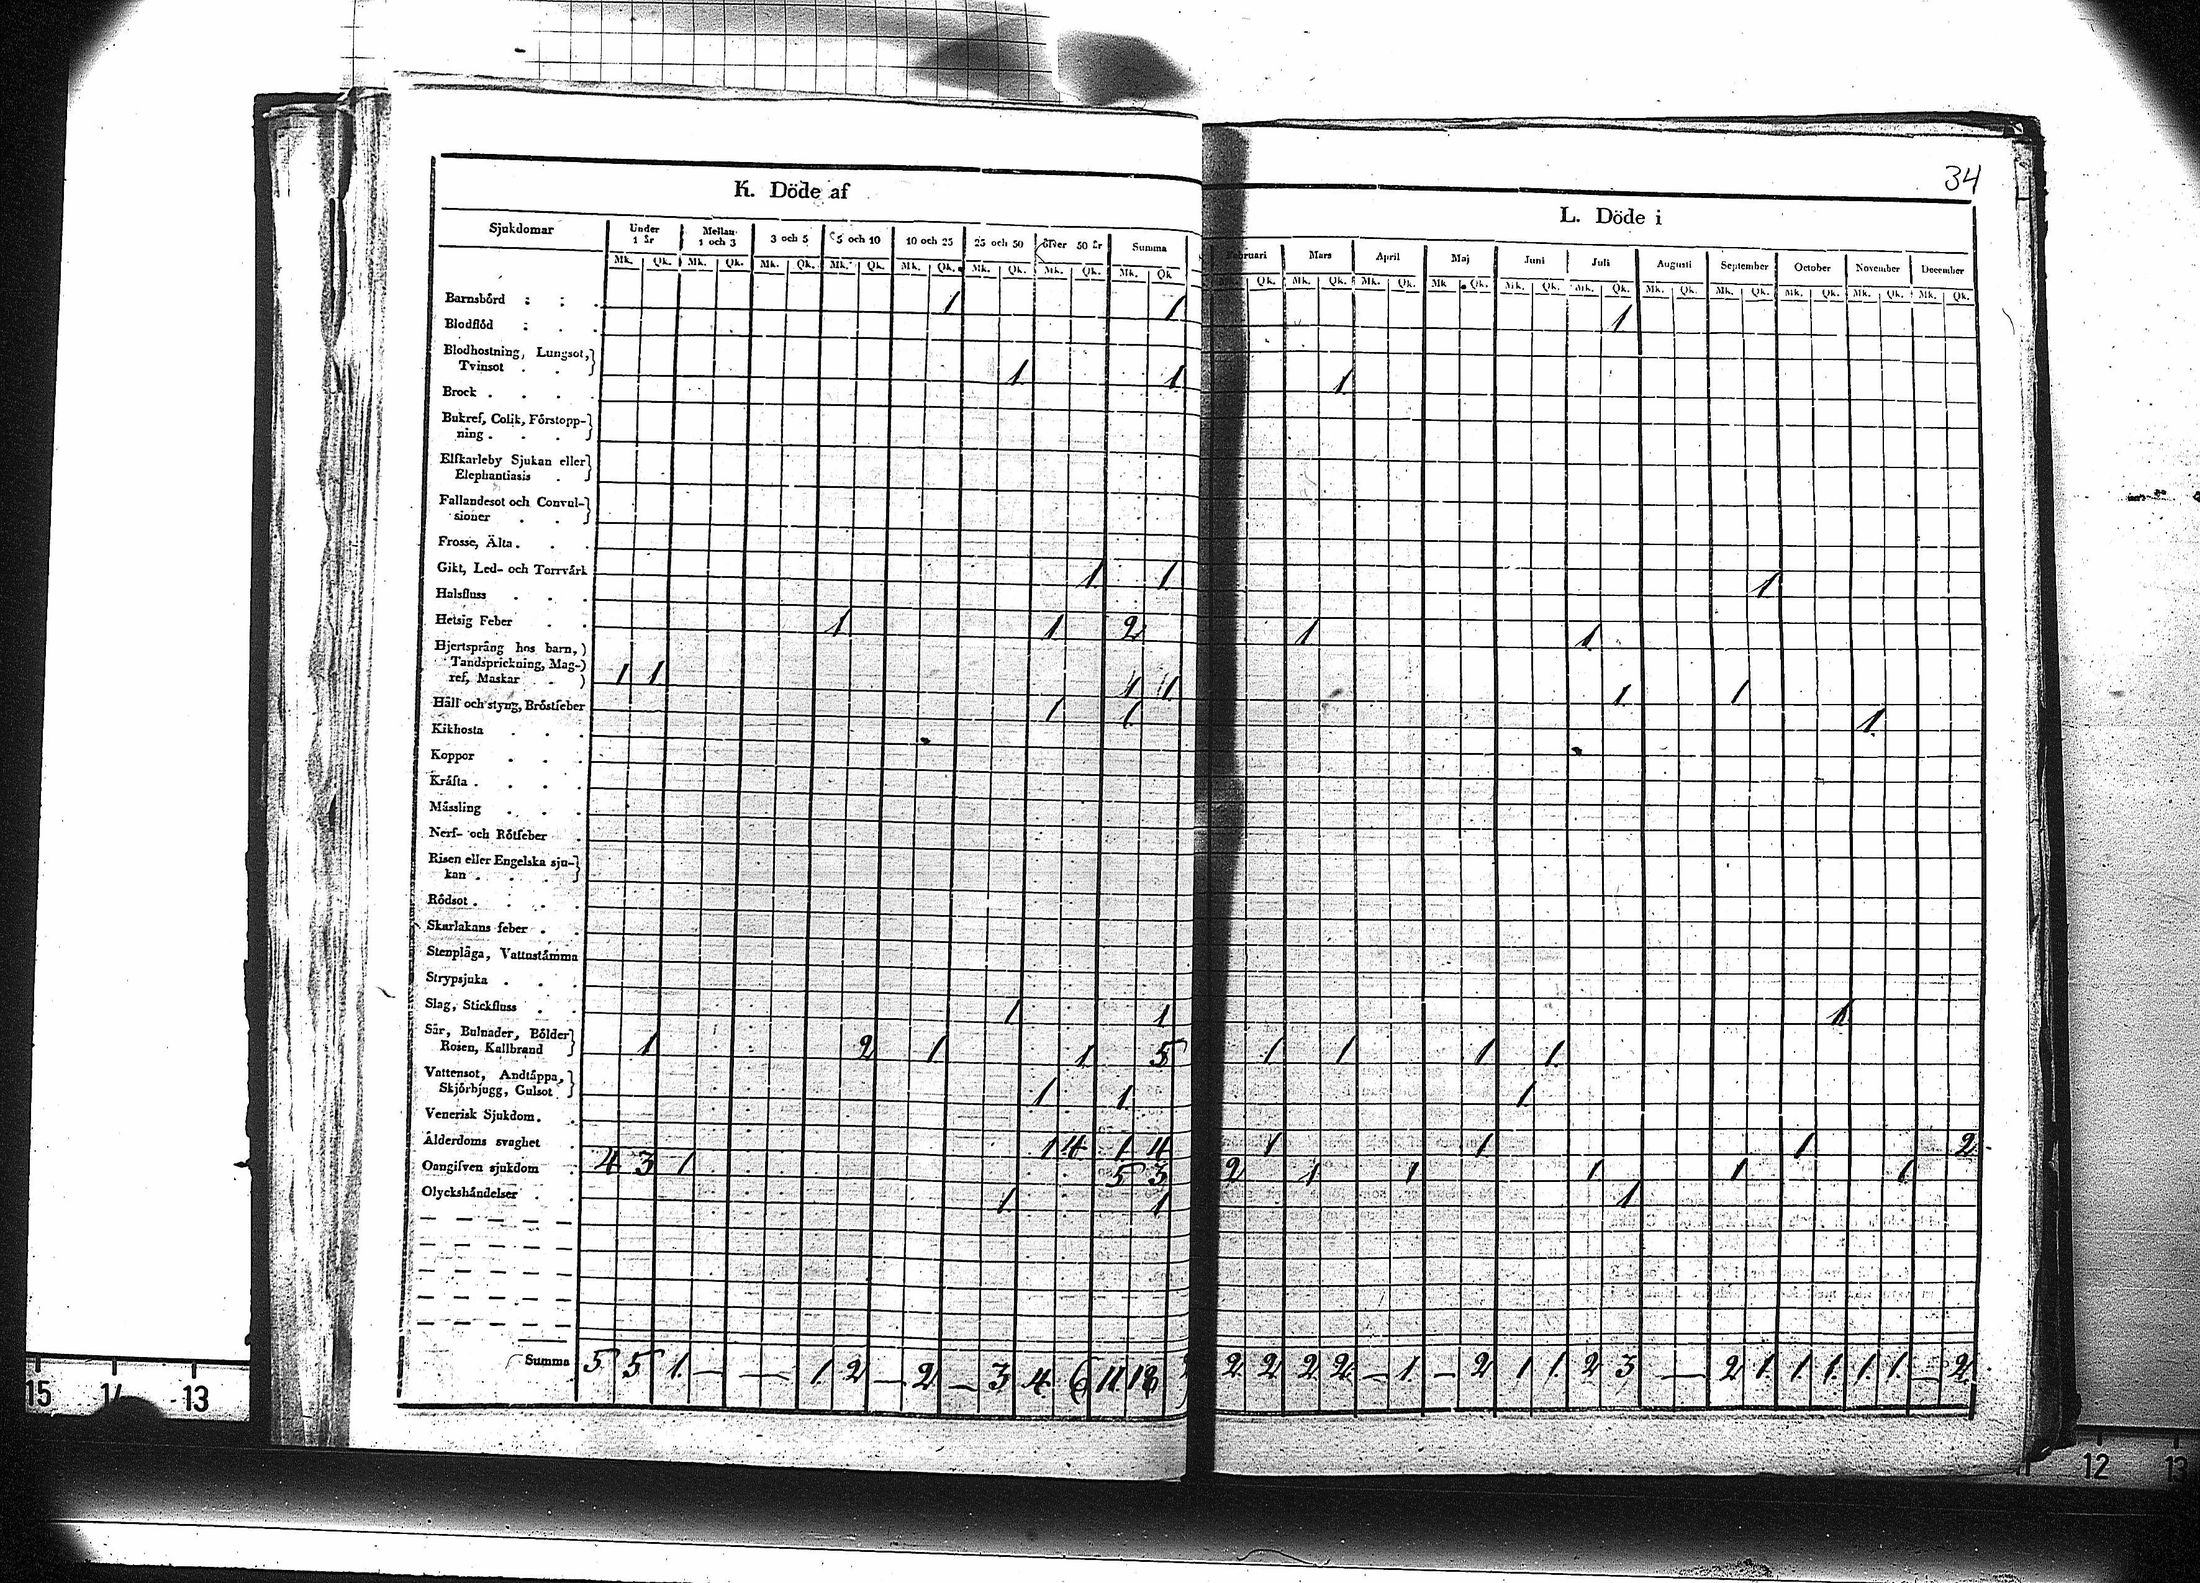 34
K. Döde af
L. Döde i
Sjukdomar Under 1 år Mellan 1 och 3 3 och 5 5 och 10 10 och 25 25 och 50 öfver 50 år Summa
Mk. Qk. Mk. Qk. Mk. Qk. Mk. Qk. Mk. Qk. Mk. Qk. Mk. Qk. Mk. Qk
Februari Mars April Maj Juni Juli Augusti September October November December
Qk. Mk. Qk. Mk. Qk. Mk Qk. Mk. Qk. Mk. Qk. Mk. Qk. Mk. Qk. Mk. Qk. Mk. Qk. Mk. Qk.
Barnsbörd 1 1 1
Blodflöd
Blodhostning, Lungsot,
Tvinsot 1 1 1
Brock
Bukref, Colik, Förstopp-
ning
Elfkarleby Sjukan eller
Elephantiasis
Fallandesot och Convul-
sioner
Frosse, Älta
Gikt, Led- och Torrvärk 1 1 1
Halsfluss
Hetsig Feber 1 1 2 1 1
Hjertsprång hos barn,
Tandsprickning, Mag-
ref, Maskar 1 1 1 1 1 1
Håll och styng, Bröstfeber 1 1 1
Kikhosta
Koppor
Kräfta
Mässling
Nerf- och Rötfeber
Risen eller Engelska sju-
kan
Rödsot
Skarlakans feber
Stenplåga, Vattnstämma
Strypsjuka
Slag, Stickfluss 1 1 1
Sår, Bulnader, Bölder
Rosen, Kallbrand 1 2 1 1 5 1 1 1 1
Vattensot, Andtäppa,
Skjörbjugg, Gulsot 1 1 1
Venerisk Sjukdom.
Ålderdoms svaghet 1 4 1 4 1 1 1 2
Oangifven sjukdom 4 3 1 5 3 2 1 1 1 1 1
Olyckshändelser 1 1 1
Summa 5 5 1 — — 1 2 — 2 — 3 4 6 11 18 2 2 2 2 — 1 — 2 1 1 2 3 — 2 1 1 1 1 1 — 2
15 14 13
12 13